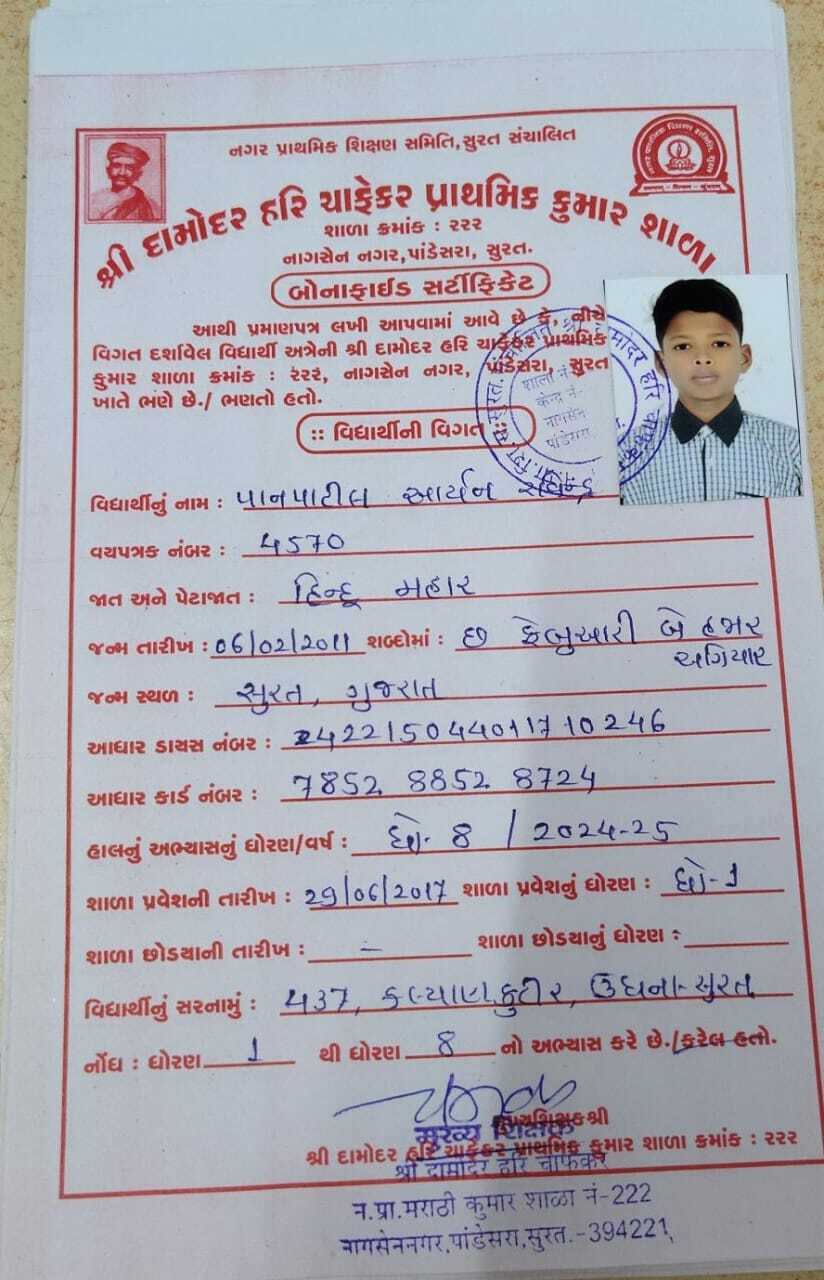 નગર પ્રાથમિક શિક્ષણ સમિતિ,સુરત સંચાલિત
શ્રી દામોદર હરિ ચાફેકર પ્રાથમિક કુમાર શાળા
શાળા ક્રમાંક : ૨૨૨
નાગસેન નગર,પાંડેસરા, સુરત.
બોનાફાઈડ સર્ટીફિકેટ
આથી પ્રમાણપત્ર લખી આપવામાં આવે છે કે, નીચે
વિગત દર્શાવેલ વિદ્યાર્થી અત્રેની શ્રી દામોદર હરિ ચાફેકર પ્રાથમિક
કુમાર શાળા ક્રમાંક : ૨૨૨, નાગસેન નગર, પાંડેસરા, સુરત
ખાતે ભણે છે./ ભણતો હતો.
:: વિદ્યાર્થીની વિગત ::
વિદ્યાર્થીનું નામ : પાનપાટીલ આર્યન
વયપત્રક નંબર : 4570
જાત અને પેટાજાત : હિન્દૂ મહાર
જન્મ તારીખ : 06/02/2011 શબ્દોમાં : છ ફેબ્રુઆરી બે હજાર
અગિયાર
જન્મ સ્થળ : સુરત, ગુજરાત
આધાર ડાયસ નંબર : 242215044011710246
આધાર કાર્ડ નંબર : 7852 8852 8724
હાલનું અભ્યાસનું ધોરણ/વર્ષ : ધો- 8 / 2024-25
શાળા પ્રવેશની તારીખ : 29/06/2017 શાળા પ્રવેશનું ધોરણ : ધો-1
શાળા છોડયાની તારીખ : - શાળા છોડયાનું ધોરણ :
વિદ્યાર્થીનું સરનામું : 437, કલ્યાણ કુટીર, ઉધના-સુરત
નોંધ : ધોરણ 1 થી ધોરણ 8 નો અભ્યાસ કરે છે./કરેલ હતો.
मुख्य शिक्षक
શ્રી દામોદર હરિ ચાફેકર પ્રાથમિક કુમાર શાળા ક્રમાંક : ૨૨૨
श्री दामोदर हरि चाफेकर
न.प्रा.मराठी कुमार शाळा नं-222
नागसेननगर,पांडेसरा,सुरत.-394221